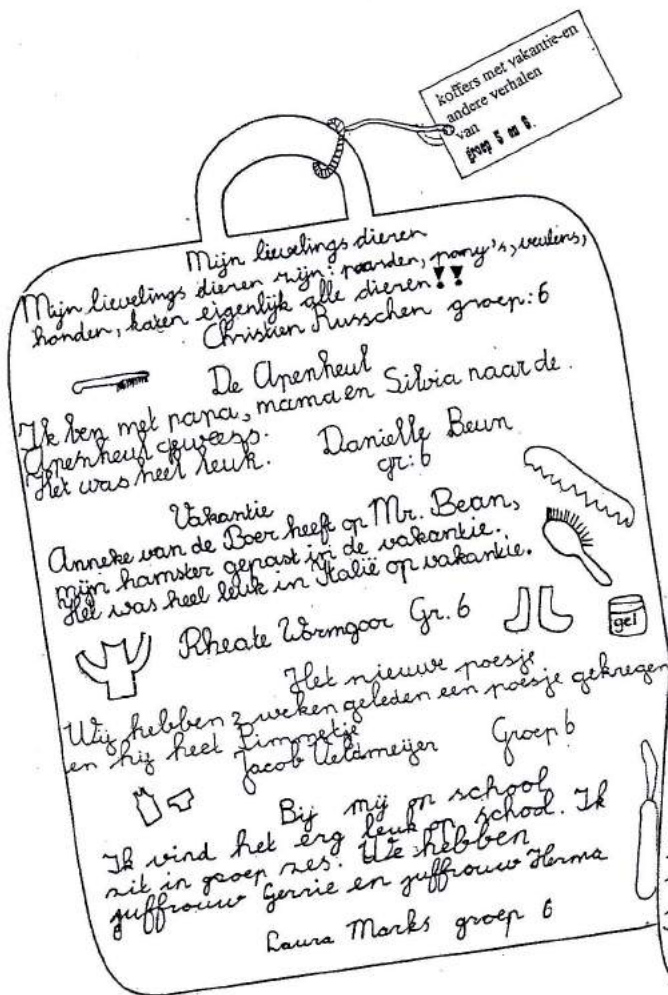 koffers met vakantie-en
andere verhalen
van
groep 5 en 6.
Mijn lievelings dieren
Mijn lievelings dieren zijn: paarden, pony's, veulens,
honden, katen eigenlijk alle dieren!!
Christien Russchen groep: 6
De Apenheul
Ik ben met papa, mama en Silvia naar de
Apenheul geweess.
Het was heel leuk. Danielle Beun
gr: 6
Vakantie
Anneke van de Boer heeft op Mr. Bean,
mijn hamster gepast in de vakantie.
Het was heel leuk in Italië op vakantie.
Rheate Wormgoor Gr. 6
gel
Het nieuwe poesje
Wij hebben 2 weken geleden een poesje gekregen
en hij heet Pimmetje
Jacob Veldmeijer Groep 6
Bij mij op school
Ik vind het erg leuk op school. Ik
zit in groep zes. We hebben
juffrouw Gerrie en juffrouw Herma
Laura Marks groep 6